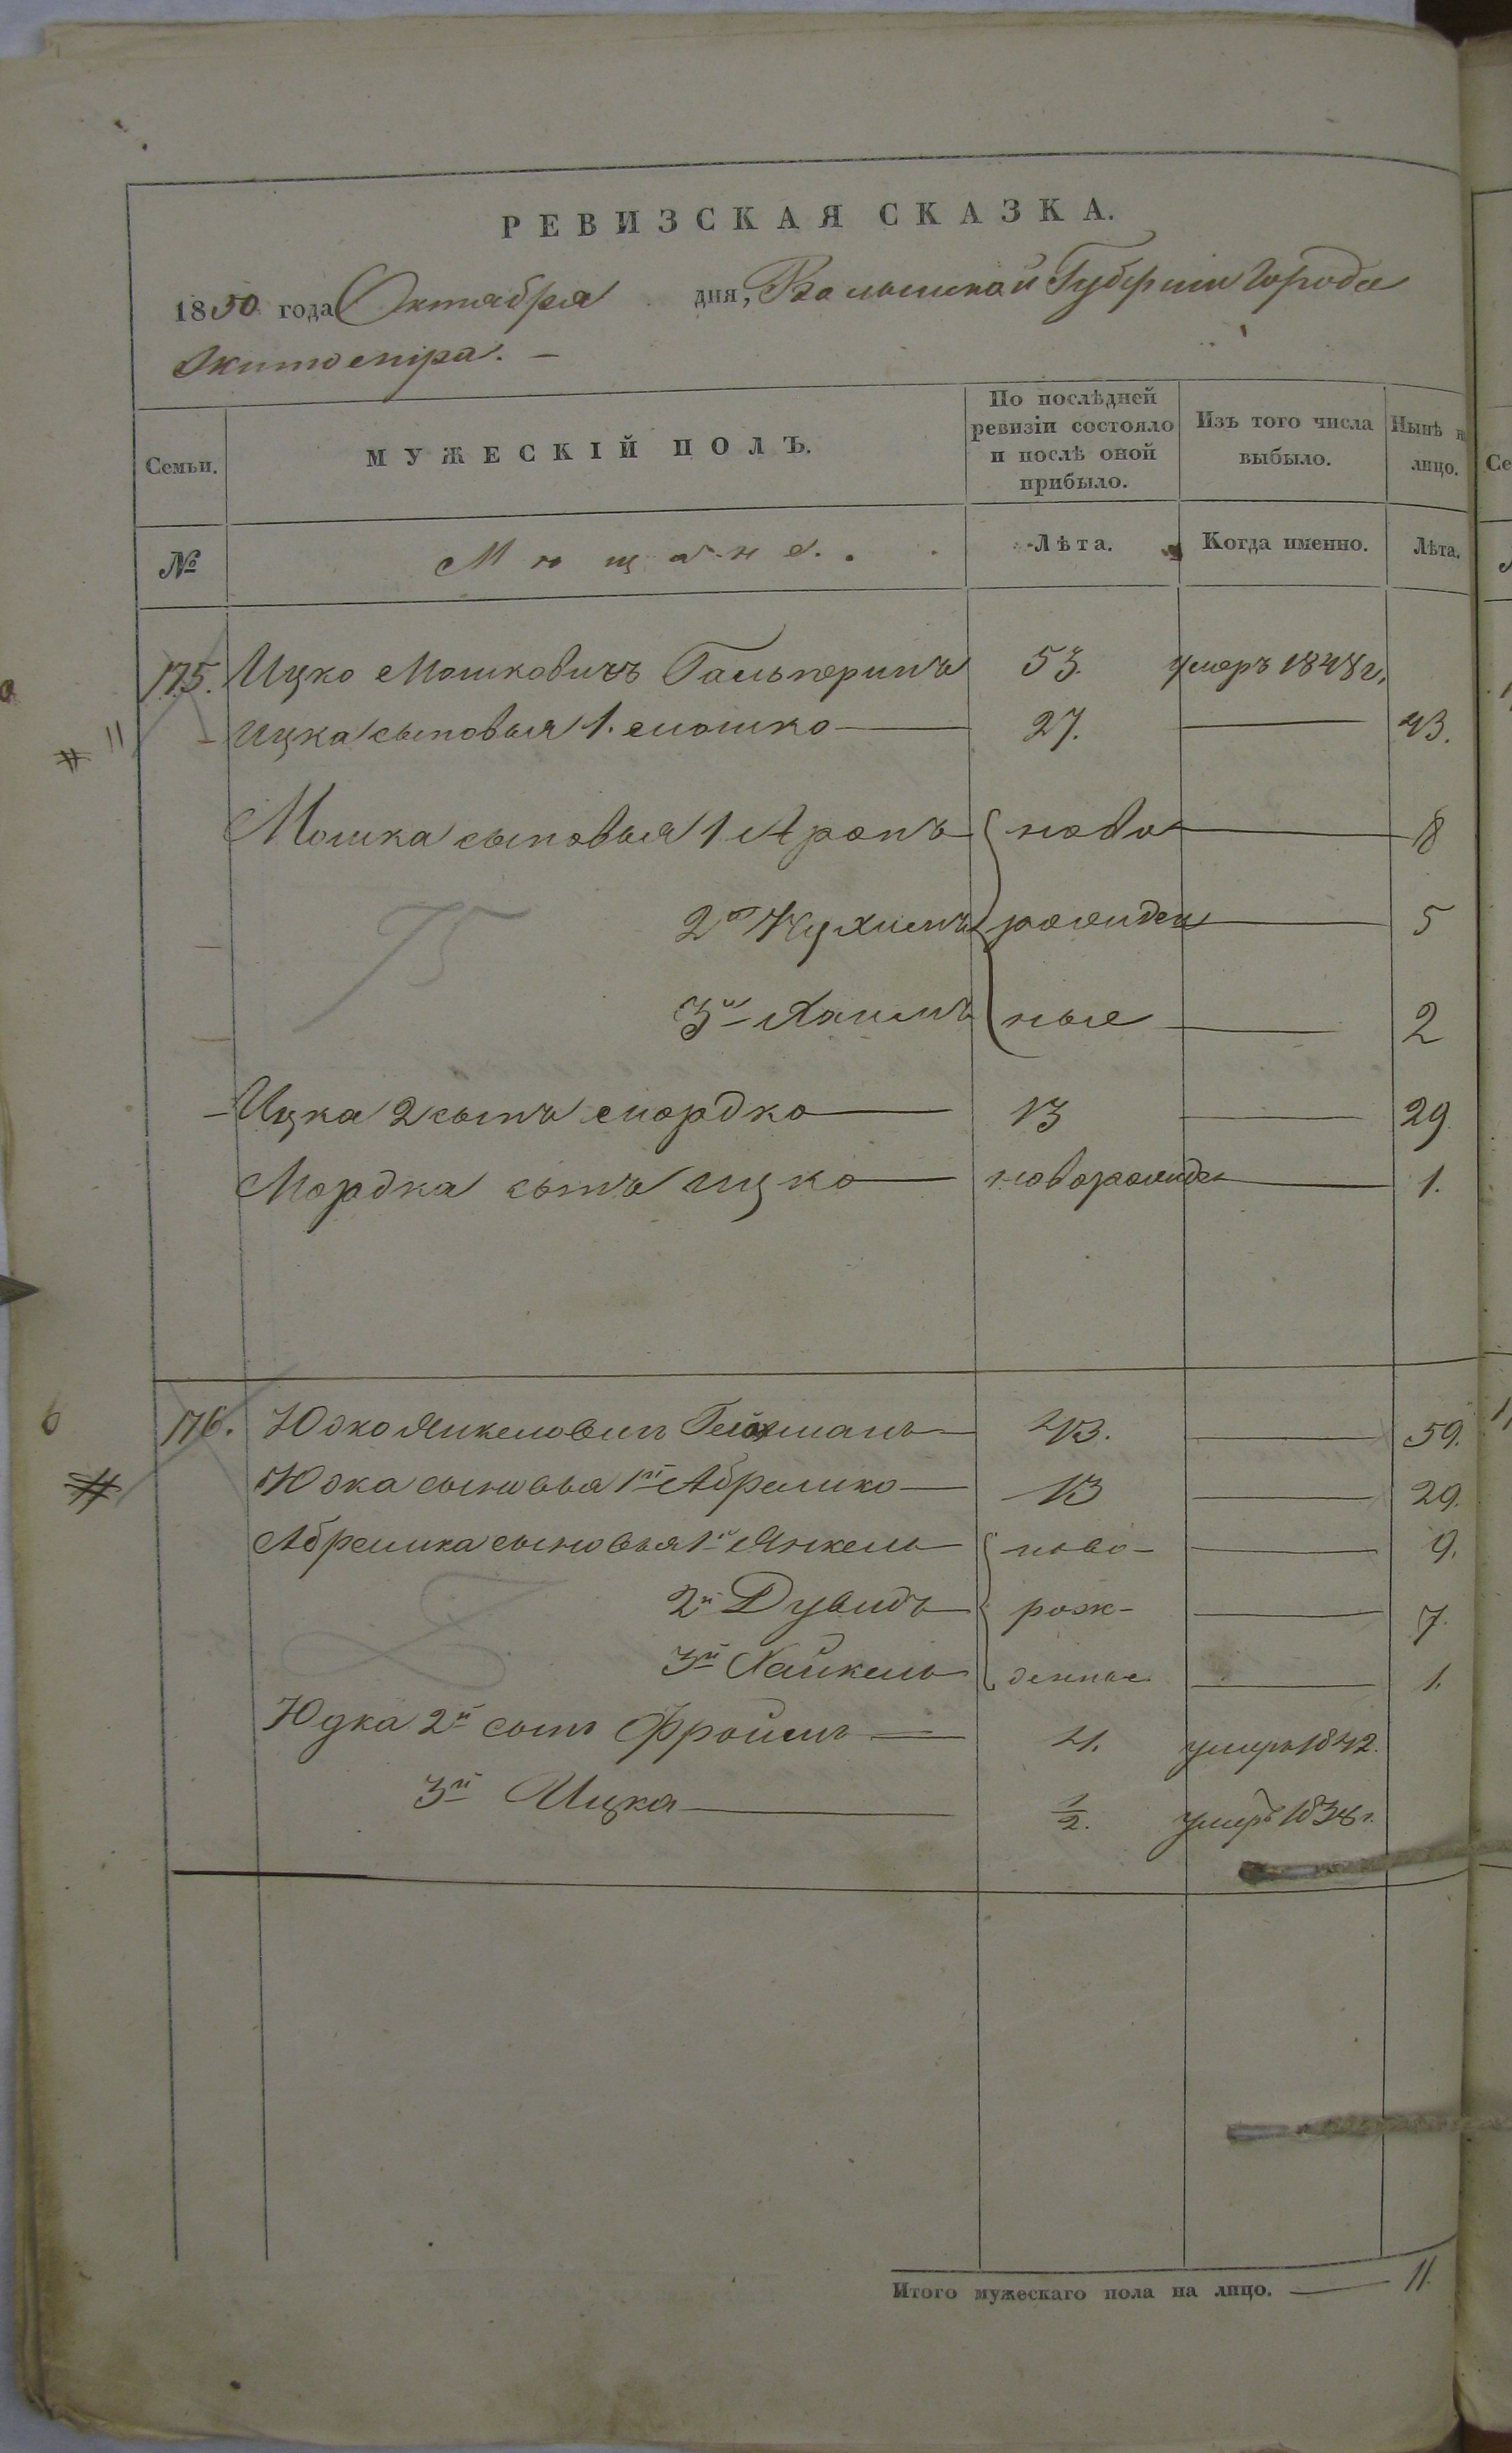 РЕВИЗСКАЯ СКАЗКА.
1850 года Октября дня, Волынской Губерніи Города
Житоміра. —
Семьи. МУЖЕСКІЙ ПОЛЪ. По послѣдней ревизіи состояло и послѣ оной прибыло. Изъ того числа выбыло. Нынѣ на лицо.
№ Мѣщане. Лѣта. Когда именно. Лѣта.
175. Ицко Мошковичъ Гальперинъ 53. умеръ 1848 г.
Ицка сыновья 1. Мошко — 27. — 43.
Мошка сыновья 1 Аронъ ново — 8
2й Нухимъ рожден — 5
3й Хаимъ ные — 2
Ицка 2 сынъ Мордко — 13 — 29
Мордка сынъ Ицко — новорожде — 1.
176. Юдко Янкелевичъ — 43. — 59.
Юдка сыновья 1й Абрамко — 13 — 29.
Абрамка сыновья 1й Янкель — ново- — 9.
2й Дувидъ — рож- — 7.
3й Хайкель — денные — 1.
Юдка 2й сынъ Фроимъ — 4. умеръ 1842.
3й Ицка — 1/2. умеръ 1838 г.
Итого мужескаго пола на лицо. — 11.